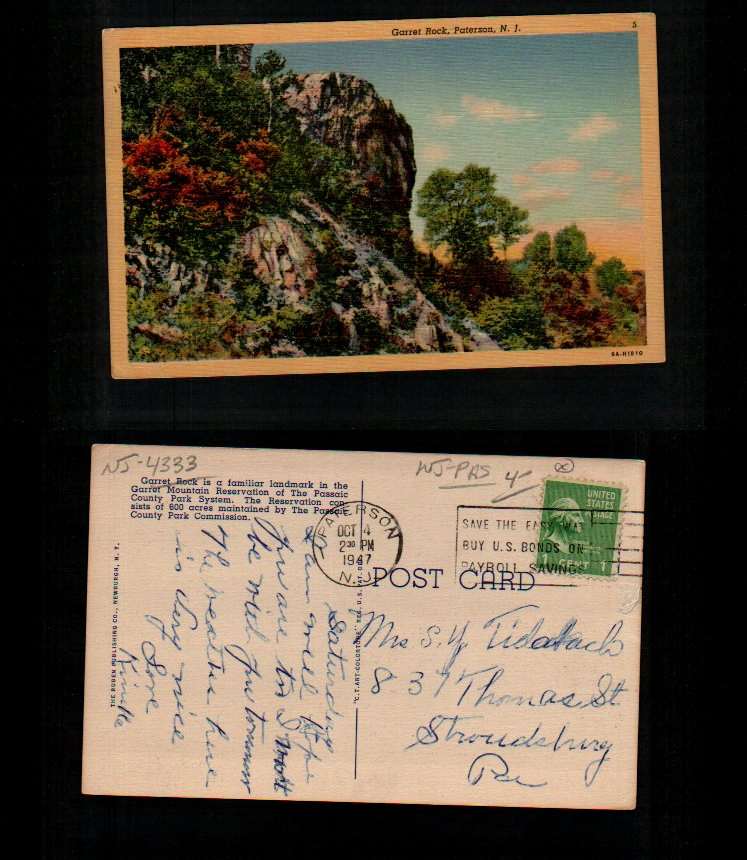 Garret Rock, Paterson, N. J.
5
9A-H1810
NJ-4333
Garret Rock is a familiar landmark in the
Garret Mountain Reservation of The Passaic
County Park System. The Reservation con-
sists of 600 acres maintained by The Passaic
County Park Commission.
WJ-PAS 4-
X
PATERSON
OCT 4
2 30 PM
1947
N.J.
SAVE THE EASY WAY
BUY U.S. BONDS ON
PAYROLL SAVINGS
UNITED
STATES
POSTAGE
1
POST CARD
THE RUBEN PUBLISHING CO., NEWBURGH, N. Y.
"C.T.ART-COLORTONE" REG. U.S. PAT. OFF.
Saturday
I am well Hope
you are to I wont
be with you tomorrow
The weather here
is very nice
Love
Mrs S. Y.
837 Thomas St
Stroudsburg
Pa